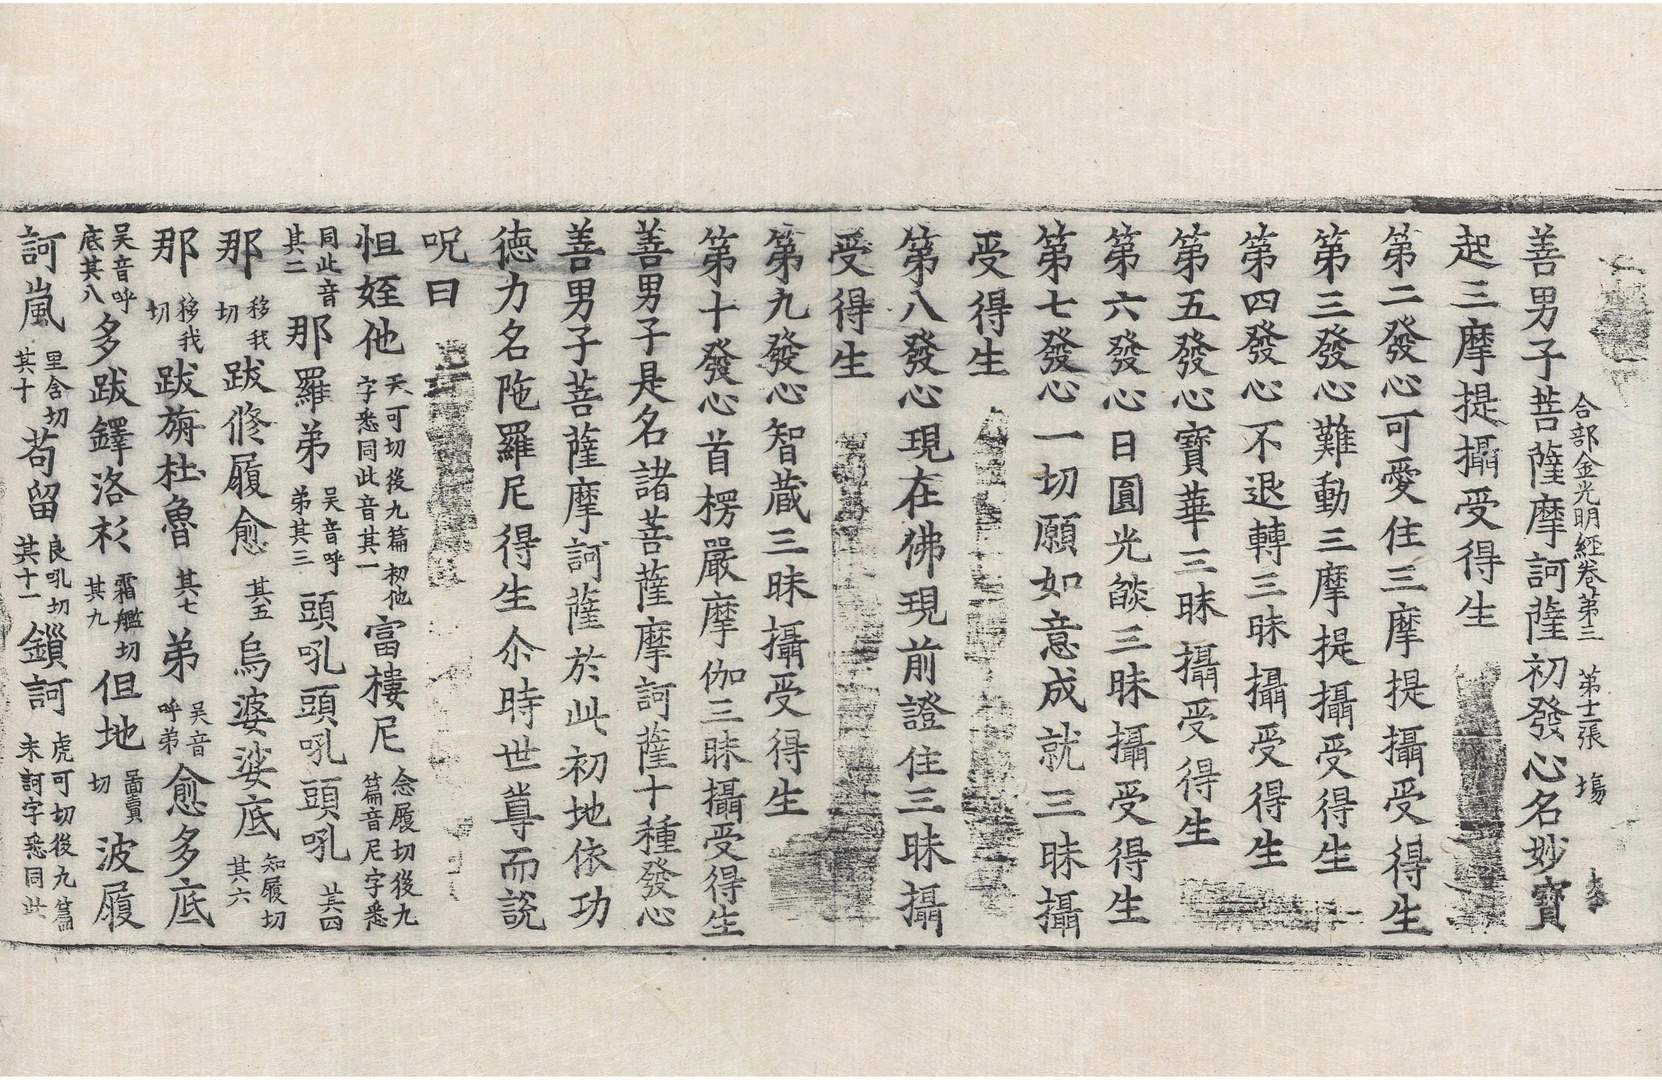 合部金光明經卷第三 第十二張 塲
善男子菩薩摩訶薩初發心名妙寶
起三摩提攝受得生
第二發心可愛住三摩提攝受得生
第三發心難動三摩提攝受得生
第四發心不退轉三昧攝受得生
第五發心寶華三昧攝受得生
第六發心日圓光燄三昧攝受得生
第七發心一切願如意成就三昧攝
受得生
第八發心現在佛現前證住三昧攝
受得生
第九發心智蔵三昧攝受得生
第十發心首楞嚴摩伽三昧攝受得生
善男子是名諸菩薩摩訶薩十種發心
善男子菩薩摩訶薩於此初地依功
德力名陁羅尼得生尒時世尊而說
呪曰
怛姪他天可切後九篇初他字悉同此音其一富樓尼念履切後九篇音尼字悉
同此音其二那羅弟吴音呼弟其三頭吼頭吼頭吼其四
那移我切跋修履愈其五烏婆娑底知履切其六
那移我切跋旃杜魯其七弟吴音呼弟愈多底
吴音呼底其八多跋鐸洛杉霜艦切其九但地啚賣切波履
訶嵐里含切其十苟留良吼切其十一鎻訶虎可切後九篇末訶字悉同此